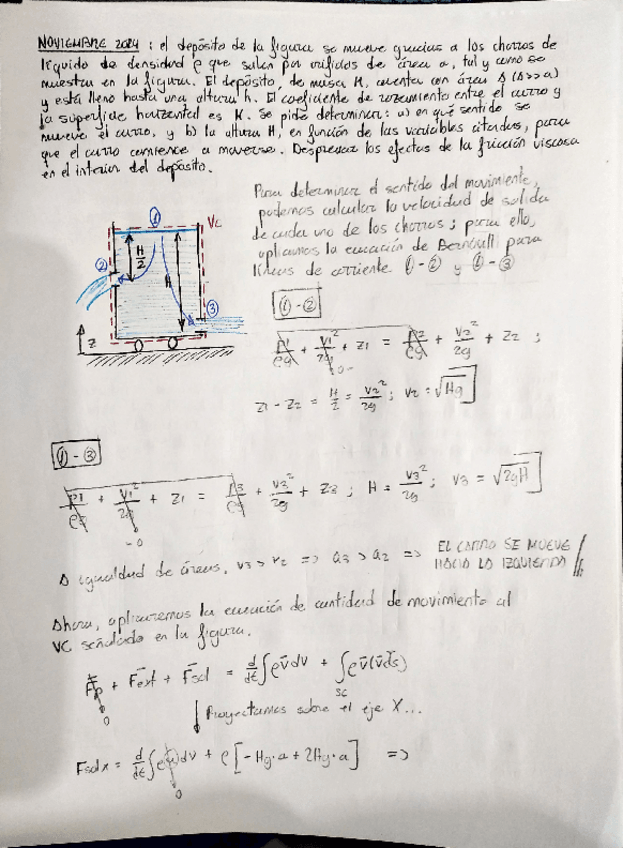 NOVIEMBRE 2024 : el depósito de la figura se mueve gracias a los chorros de
líquido de densidad ρ que salen por orificios de área a, tal y como se
muestra en la figura. El depósito, de masa M, cuenta con área A (A>>a)
y está lleno hasta una altura h. El coeficiente de rozamiento entre el carro y
la superficie horizontal es K. Se pide determinar: a) en qué sentido se
mueve el carro, y b) la altura H, en función de las variables citadas, para
que el carro comience a moverse. Despreciar los efectos de la fricción viscosa
en el interior del depósito.
Para determinar el sentido del movimiento,
podemos calcular la velocidad de salida
de cada uno de los chorros; para ello,
aplicamos la ecuación de Bernoulli para
líneas de corriente ①-② y ①-③
① VC
H/2
②
③
z
①-②
P1/ρg + V1²/2g + z1 = P2/ρg + V2²/2g + z2 ;
z1 - z2 = H/2 = V2²/2g ; V2 = √Hg
①-③
P1/ρg + V1²/2g + z1 = P3/ρg + V3²/2g + z3 ; H = V3²/2g ; V3 = √2gH
A igualdad de áreas, V3 > V2 => Q3 > Q2 => EL CARRO SE MUEVE
HACIA LA IZQUIERDA
Ahora, aplicaremos la ecuación de cantidad de movimiento al
VC señalado en la figura.
Fp + Fext + Fsol = d/dt ∫ρv̄dV + ∫ρv̄(v̄ds̄)
0 SC
Proyectamos sobre el eje X...
Fsolx = d/dt ∫ρ(u)dV + ρ[-Hg·a + 2Hg·a] =>
0